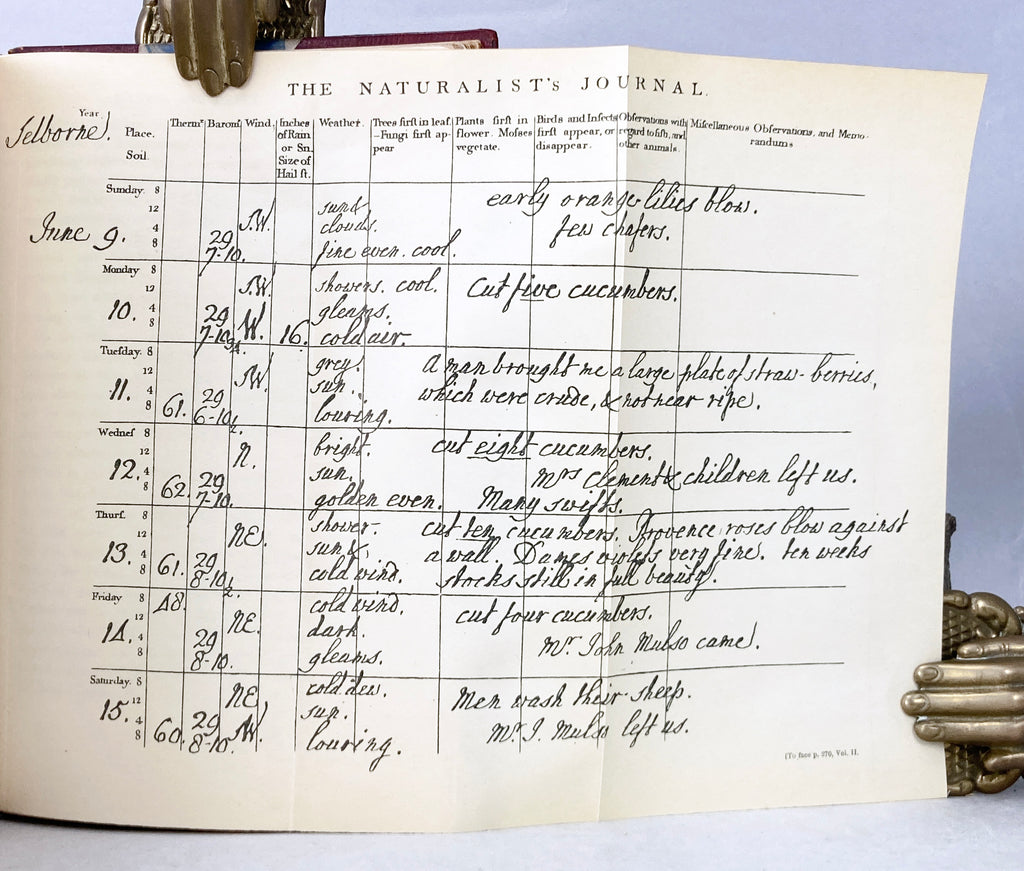 THE NATURALIST's JOURNAL.
Year
Selborne.
Place.
Soil.
Thermr
Baromr
Wind.
Inches of Rain or Sn. Size of Hail ſt.
Weather.
Trees firſt in leaf. —Fungi firſt appear
Plants firſt in flower. Moſſes vegetate.
Birds and Inſects firſt appear, or disappear.
Obſervations with regard to fiſh, and other animals.
Miſcellaneous Obſervations, and Memorandums
Sunday. 8
12
4
8
June 9.
29
7-10.
S.W.
sun &
clouds.
fine even. cool.
early orange-lilies blow.
few chafers.
Monday 8
12
4
8
10.
29
7-10
S.W.
W.
16.
showers. cool.
gleams.
cold air.
Cut five cucumbers.
Tuesday 8
12
4
8
11.
61.
29
6-10
SW.
grey.
sun.
louring.
A man brought me a large plate of straw-berries,
which were crude, & not near ripe.
Wedneſ 8
12
4
8
12.
62.
29
7-10.
N.
bright.
sun.
golden even.
cut eight cucumbers.
Mrs Clement & children left us.
Many swifts.
Thurſ. 8
12
4
8
13.
61.
29
8-10
NE.
shower.
sun &
cold wind.
cut ten cucumbers. Provence roses blow against
a wall. Dames violets very fine. ten weeks
stocks still in full beauty.
Friday 8
12
4
8
14.
48.
29
8-10.
NE.
cold wind.
dark.
gleams.
cut four cucumbers.
Mr. John Mulso came.
Saturday. 8
12
4
8
15.
60.
29
8-10.
NE.
cold dew.
sun.
louring.
Men wash their sheep.
Mr. J. Mulso left us.
[To face p. 270, Vol. II.